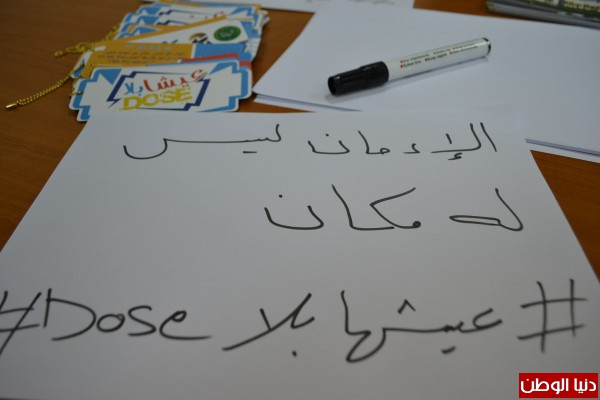 عيشها بلا
DOSE
الإدمان ليس
له مكان
# عيشها بلا Dose#
دنيا الوطن
www.alwatanvoice.com